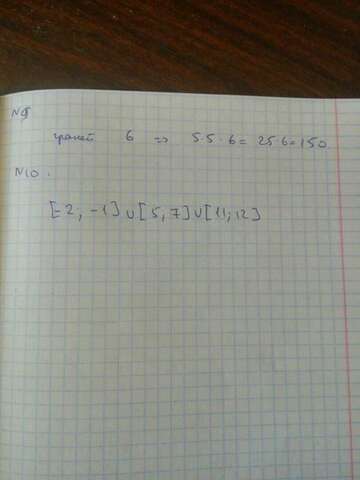 N9
граней 6 => 5·5·6 = 25·6=150
N10.
[-2; -1]∪[5, 7]∪[11; 12]